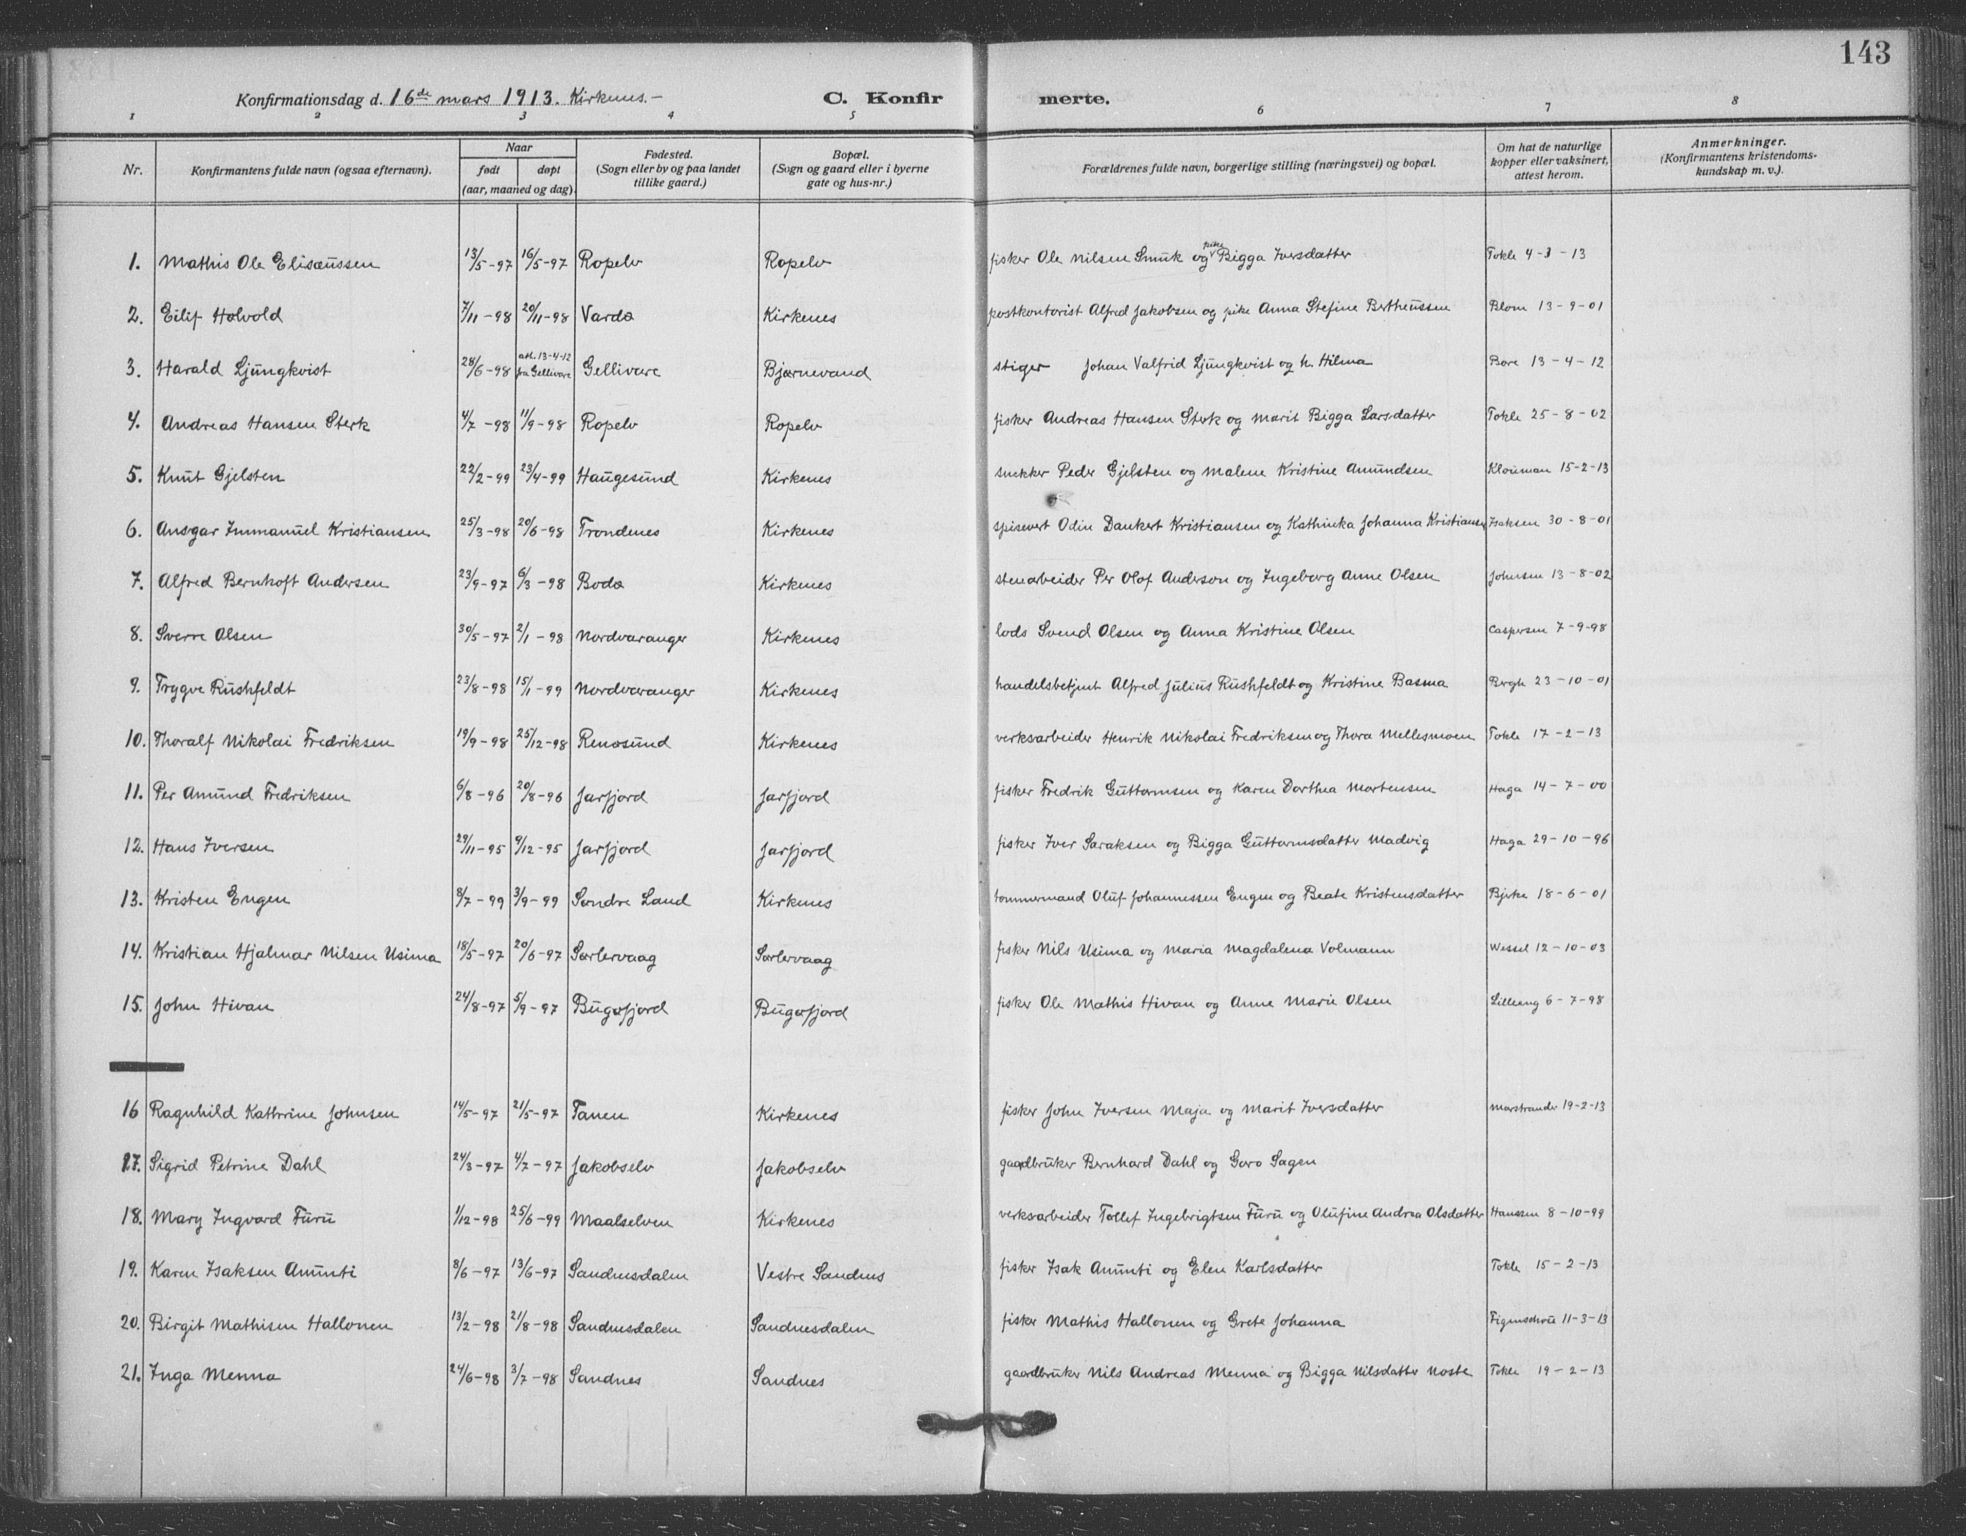 143
Konfirmationsdag d. 16de mars 1913. Kirkenes.– C. Konfirmerte.
1 2 3 4 5 6 7 8
Nr. Konfirmantens fulde navn (ogsaa efternavn). Naar født døpt (aar, maaned og dag). Fødested. (Sogn eller by og paa landet tillike gaard.) Bopæl. (Sogn og gaard eller i byerne gate og hus-nr.) Forældrenes fulde navn, borgerlige stilling (næringsvei) og bopæl. Om hat de naturlige kopper eller vaksinert, attest herom. Anmerkninger. (Konfirmantens kristendoms-kundskap m. v.).
1. Mathis Ole Elisæussen 13/5-97 16/5-97 Ropelv Ropelv fisker Ole Nilsen Smuk og pike Bigga Iversdatter Tokle 4-3-13
2. Eilif Holvold 7/11-98 20/11-98 Vardø Kirkenes postkontorist Alfred Jakobsen og pike Anna Stefine Bertheussen Blom 13-9-01
3. Harald Ljungkvist 28/6-98 att. 13-4-12 fra Gellivare Gellivare Bjørnevand stiger Johan Valfrid Ljungkvist og h. Hilma Bore 13-4-12
4. Andreas Hansen Sterk 4/7-98 11/9-98 Ropelv Ropelv fisker Andreas Hansen Sterk og Marit Bigga Larsdatter Tokle 25-8-02
5. Knut Gjelsten 22/2-99 23/4-99 Haugesund Kirkenes snekker Peder Gjelsten og Malene Kristine Amundsen Klouman 15-2-13
6. Ansgar Immanuel Kristiansen 25/3-98 20/6-98 Trondenes Kirkenes spisevert Odin Dankert Kristiansen og Kathinka Johanna Kristiansen Isaksen 30-8-01
7. Alfred Bernhoft Andersen 23/9-97 6/3-98 Bodø Kirkenes stenarbeider Per Olof Anderson og Ingeborg Anne Olsen Johnsen 13-8-02
8. Sverre Olsen 30/5-97 2/1-98 Nordvaranger Kirkenes lods Svend Olsen og Anna Kristine Olsen Caspersen 7-9-98
9. Trygve Rushfeldt 23/8-98 15/1-99 Nordvaranger Kirkenes handelsbetjent Alfred Julius Rushfeldt og Kristine Basma Bergh 23-10-01
10. Thoralf Nikolai Fredriksen 19/9-98 25/12-98 Renøsund Kirkenes verksarbeider Henrik Nikolai Fredriksen og Thora Mellesmoen Tokle 17-2-13
11. Per Amund Fredriksen 6/8-96 20/8-96 Jarfjord Jarfjord fisker Fredrik Guttormsen og Karen Dorthea Mortensen Haga 14-7-00
12. Hans Iversen 29/11-95 9/12-95 Jarfjord Jarfjord fisker Iver Saraksen og Bigga Guttormsdatter Madvig Haga 29-10-96
13. Kristen Engen 8/7-99 3/9-99 Søndre Land Kirkenes tømmermand Oluf Johannessen Engen og Beate Kristensdatter Bjirke 18-6-01
14. Kristian Hjalmar Nilsen Usima 18/5-97 20/6-97 Sørlervaag Sørlervaag fisker Nils Usima og Maria Magdalena Volmann Wessel 12-10-03
15. John Hivan 24/8-97 5/9-97 Bugøfjord Bugøfjord fisker Ole Mathis Hivan og Anne Marie Olsen Lilleeng 6-7-98
16 Ragnhild Kathrine Johnsen 14/5-97 21/5-97 Tanen Kirkenes fisker John Iversen Maja og Marit Iversdatter Marstrander 19-2-13
17. Sigrid Petrine Dahl 24/3-97 4/7-97 Jakobselv Jakobselv gaardbruker Bernhard Dahl og Goro Sagen
18. Mary Ingvard Furu 1/12-98 25/6-99 Maalselven Kirkenes verksarbeider Tollef Ingebrigtsen Furu og Olufine Andrea Olsdatter Hanssen 8-10-99
19. Karen Isaksen Amunti 8/6-97 13/6-97 Sandnesdalen Vestre Sandnes fisker Isak Amunti og Elen Karlsdatter Tokle 15-2-13
20. Birgit Mathisen Hallonen 13/2-98 21/8-98 Sandnesdalen Sandnesdalen fisker Mathis Hallonen og Grete Johanna Figenschou 11-3-13
21. Inga Menna 24/6-98 3/7-98 Sandnes Sandnes gaardbruker Nils Andreas Menna og Bigga Nilsdatter Noste Tokle 19-2-13